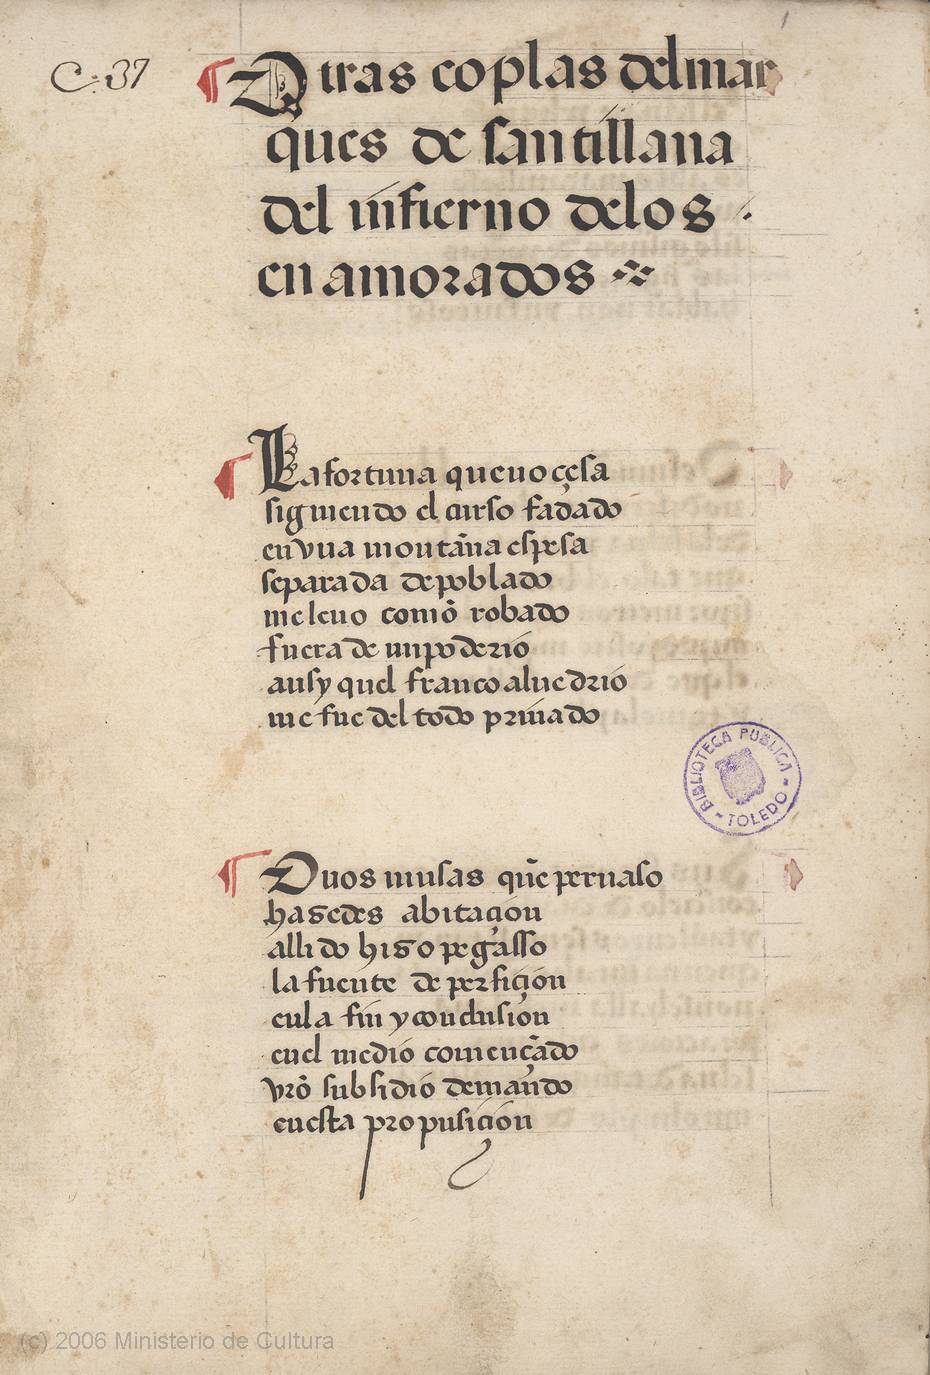 C. 37
Otras coplas del mar
ques de santillana
del infierno delos
enamorados
La fortuna que no çesa
siguiendo el curso fadado
en vna montãna espesa
separada de poblado
me leuo comõ robado
fuera de mi poderio
ansy quel franco aluedrio
me fue del todo priuado
O uos musas quẽ pernaso
hasedes abitaçion
alli do hiso pegasso
la fuente de perfiçion
en la fin y conclusion
en el medio començãdo
vrõ subsidio demando
en esta propusiçion
BIBLIOTECA PUBLICA
TOLEDO
(c) 2006 Ministerio de Cultura